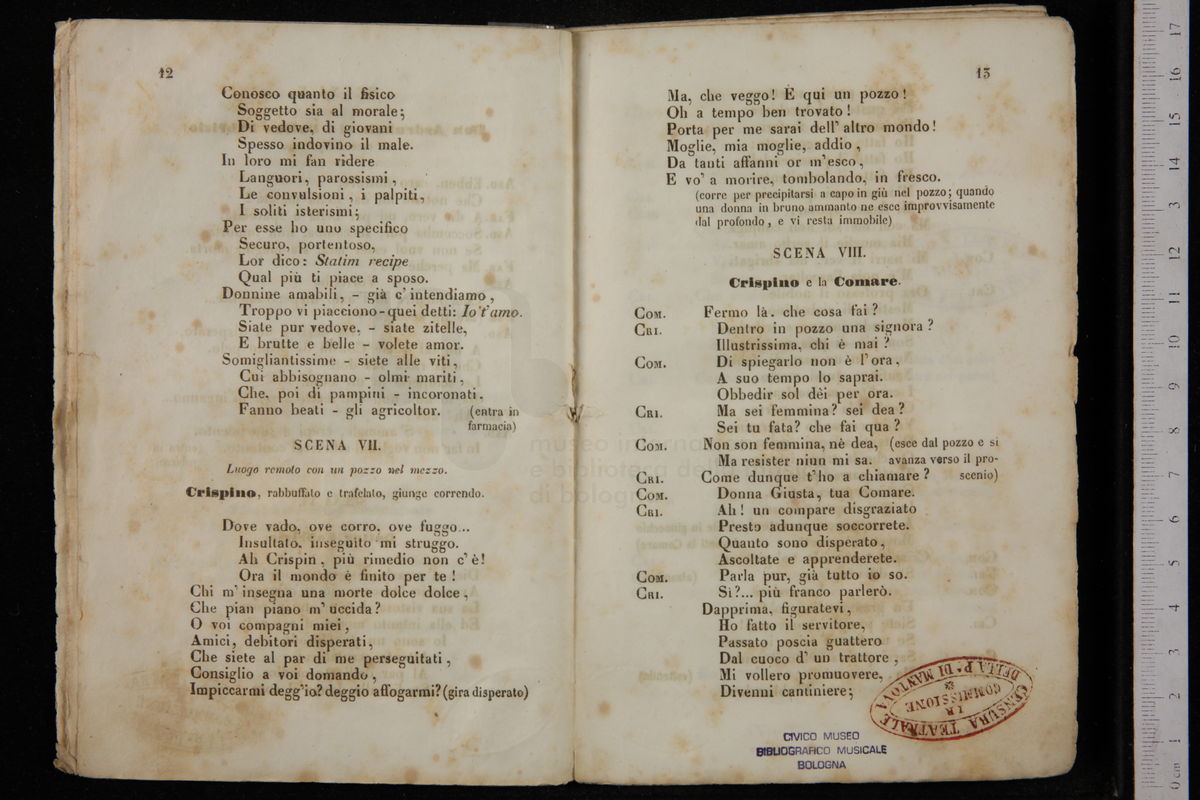 12
Conosco quanto il fisico
Soggetto sia al morale;
Di vedove, di giovani
Spesso indovino il male.
In loro mi fan ridere
Languori, parossismi,
Le convulsioni, i palpiti,
I soliti isterismi;
Per esse ho uno specifico
Securo, portentoso,
Lor dico: Statim recipe
Qual più ti piace a sposo.
Donnine amabili, - già c' intendiamo,
Troppo vi piacciono - quei detti: Io t'amo.
Siate pur vedove, - siate zitelle,
E brutte e belle - volete amor.
Somigliantissime - siete alle viti,
Cui abbisognano - olmi mariti,
Che, poi di pampini - incoronati,
Fanno beati - gli agricoltor. (entra in
farmacia)
SCENA VII.
Luogo remoto con un pozzo nel mezzo.
Crispino, rabbuffato e trafelato, giunge correndo.
Dove vado, ove corro, ove fuggo...
Insultato, inseguito mi struggo.
Ah Crispin, più rimedio non c' è!
Ora il mondo è finito per te!
Chi m' insegna una morte dolce dolce,
Che pian piano m' uccida?
O voi compagni miei,
Amici, debitori disperati,
Che siete al par di me perseguitati,
Consiglio a voi domando,
Impiccarmi degg'io? deggio affogarmi? (gira disperato)
13
Ma, che veggo! È qui un pozzo!
Oh a tempo ben trovato!
Porta per me sarai dell' altro mondo!
Moglie, mia moglie, addio,
Da tanti affanni or m'esco,
E vo' a morire, tombolando, in fresco.
(corre per precipitarsi a capo in giù nel pozzo; quando
una donna in bruno ammanto ne esce improvvisamente
dal profondo, e vi resta immobile)
SCENA VIII.
Crispino e la Comare.
COM. Fermo là. che cosa fai?
CRI. Dentro in pozzo una signora?
Illustrissima, chi è mai?
COM. Di spiegarlo non è l'ora,
A suo tempo lo saprai.
Obbedir sol dèi per ora.
CRI. Ma sei femmina? sei dea?
Sei tu fata? che fai qua?
COM. Non son femmina, nè dea, (esce dal pozzo e si
Ma resister niun mi sa. avanza verso il pro-
CRI. Come dunque t'ho a chiamare? scenio)
COM. Donna Giusta, tua Comare.
CRI. Ah! un compare disgraziato
Presto adunque soccorrete.
Quanto sono disperato,
Ascoltate e apprenderete.
COM. Parla pur, già tutto io so.
CRI. Sì?... più franco parlerò.
Dapprima, figuratevi,
Ho fatto il servitore,
Passato poscia guattero
Dal cuoco d' un trattore,
Mi vollero promuovere,
Divenni cantiniere;
CENSURA TEATRALE
DELLA P. DI MANTOVA
I R
COMMISSIONE
CIVICO MUSEO
BIBLIOGRAFICO MUSICALE
BOLOGNA
museo
e biblioteca
di bologna
0 cm 1 2 3 4 5 6 7 8 9 10 11 12 13 14 15 16 17